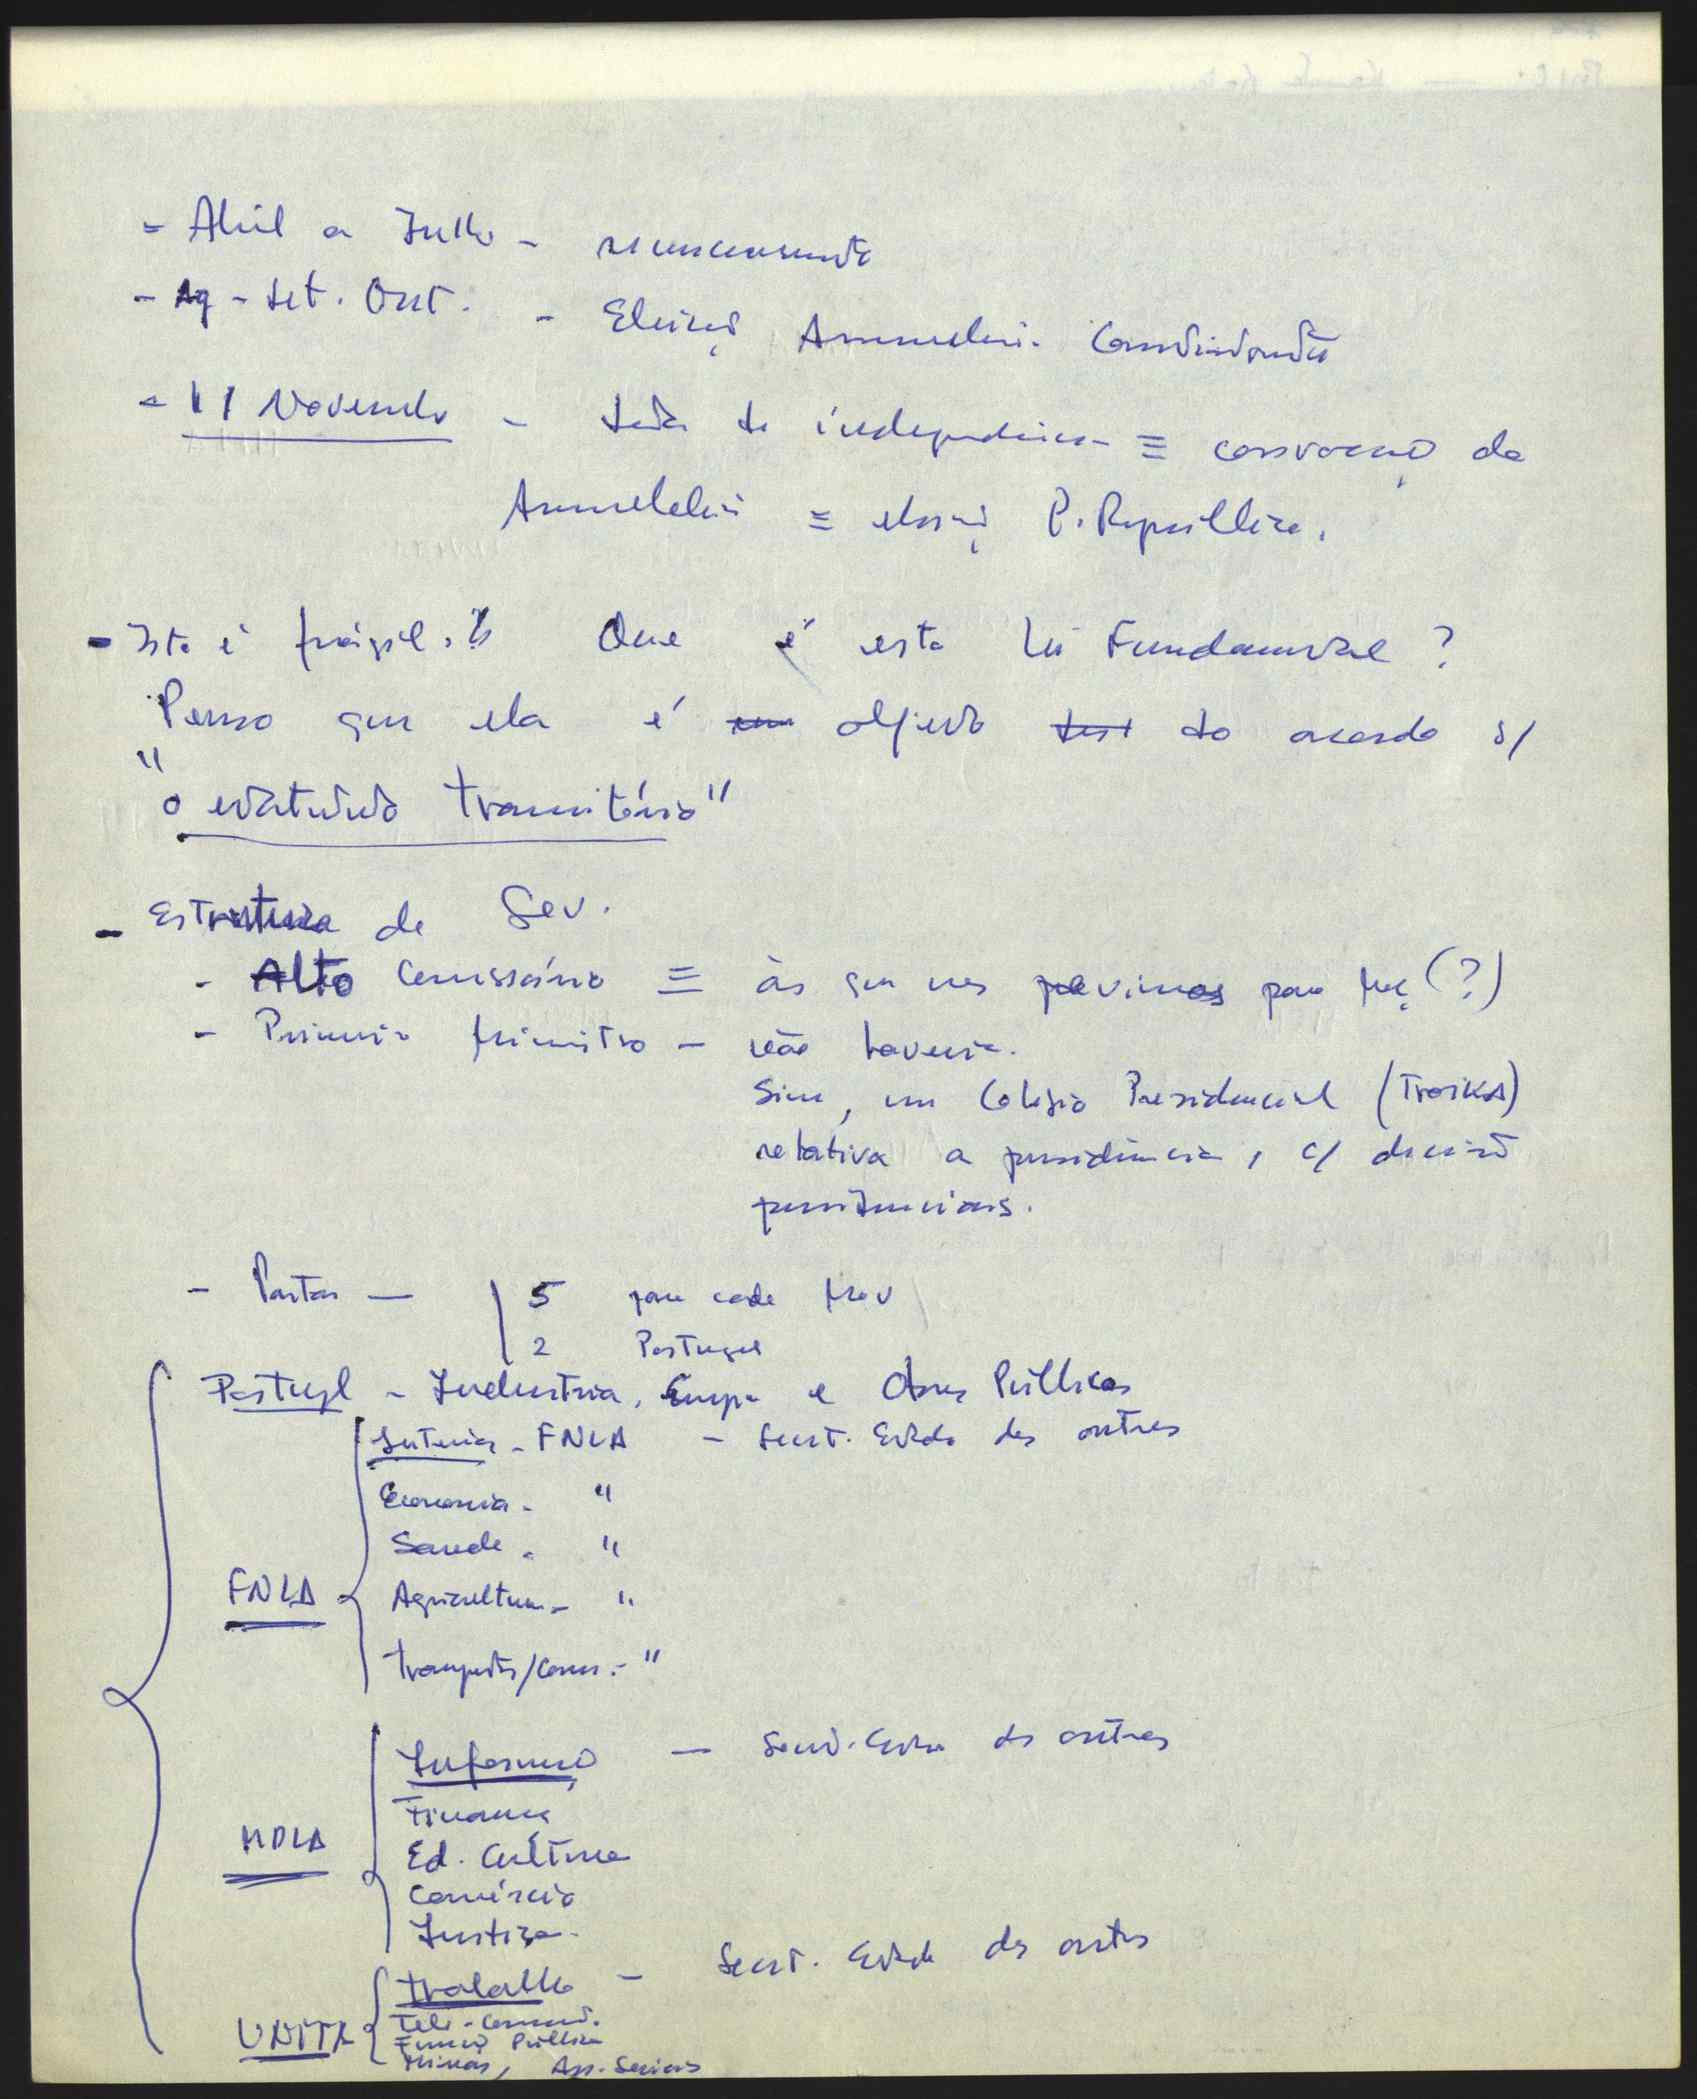 - Abril a Julho - recenseamento
- Ag - Set. Out. - Eleição Assembleia Constituinte
- 11 Novembro - data da independência ≡ convocação da
Assembleia ≡ eleição P. República.
- Isto é frágil. Que é esta Lei Fundamental?
Penso que ela é objecto do acordo s/
"o estatuto transitório"
- Estrutura de Gov.
- Alto Comissário ≡ às que nos previmos para Moç (?)
- Primeiro Ministro - não haveria.
Sim, um Colégio Presidencial (Troika)
rotativa a presidência, c/ decisão
presidenciais.
- Pastas - 5 para cada Mov
2 Portugal
Portugal - Industria, Energ e Obras Públicas
Interior - FNLA - Secret. Estado dos outros
Economia - "
Saude - "
FNLA Agricultura - "
Transportes/Comun. - "
Informação - Secret. Estado dos outros
Finanças
MPLA Ed. Cultura
Comércio
Justiça -
Trabalho - Secret. Estado dos outros
Tele-Comunic.
UNITA Função Pública
Minas, Ass. Sociais